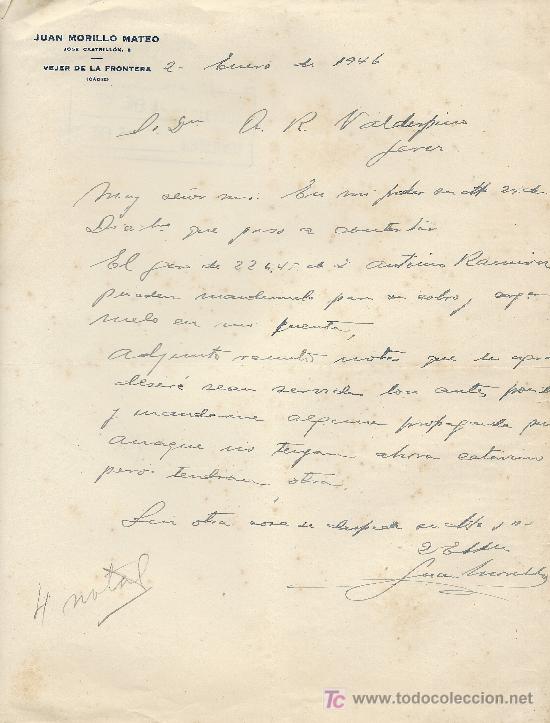 JUAN MORILLO MATEO
JOSE CASTRILLÓN, 8
VEJER DE LA FRONTERA
(CÁDIZ)
2 Enero de 1946
A. R. Valdespino
Jerez
Muy señor mio: En mi poder su atta
que paso a contestar
El giro de 226,45 de Antonio Ramirez
pueden mandarmelo para su cobro,
en mi cuenta,
Adjunto remito notas que le
deseré sean servidas lo antes
y mandarme alguna propaganda
aunque no tengan ahora
pero tendran otra.
Sin otra cosa se despide su atto
Juan Morillo
4 notas
TC www.todocoleccion.net